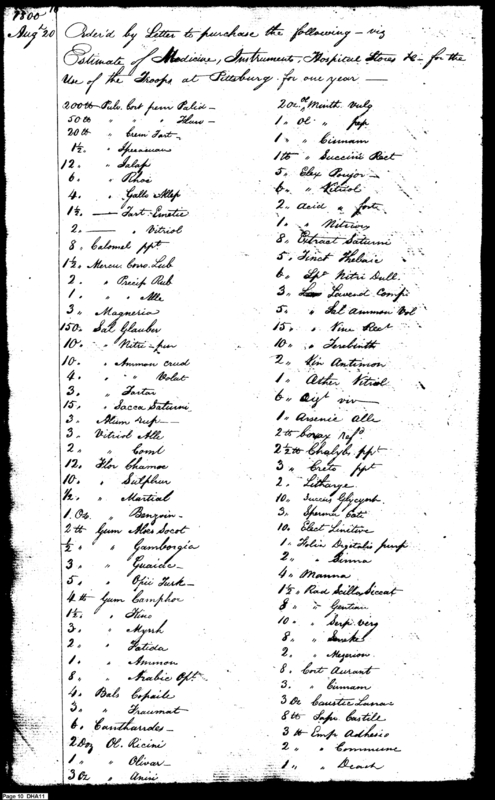 1800
Augt 20
Order'd by Letter to purchase the following – viz
Estimate of Medicine, Instruments, Hospital Stores &c – for the
Use of the Troops at Pittsburg for one year —
200 lb Pulv. Cort peruv Palid –
50 lb " " " Flav –
20 lb " Crem Tart –
1½ " Ipecacuan
12 " Jalap
6 " Rhei
4 " Gallo Allep
1½ — Tart Emetic
2 — " Vitriol
8 Calomel ppt
1½ Mercu. Corro. Sub
2 " Precip Rub
1 " " Alle
3 " Magnesia
150 Sal Glauber
10 " Nitri – pur
10 " Ammon crud
4 " " Volat
3 " Tartar
15 " Sacca Saturni
3 Alum rup –
3 Vitriol Alle
2 " Coml
12 Flor Chamoe
10 " Sulphur
½ " Martial
1 Oz. " Benzoin –
2 lb Gum Aloes Socot
½ " Gamborgia
3 " Guaiac –
5 " Opii Turk –
4 lb Gum Camphor
1½ " Kino
3 " Myrrh
2 " Fatida
1 " Ammon
8 " Arabic Opt
4 Bals Copaile
3 " Traumat
6 Cantharides –
2 Doz Ol. Ricini
1 " Olivar –
3 Oz " Anisi
2 oz Ol Minth. vulg
1 " Ol "
1 " " Cinnam
1 lb " Succini Rect
5 " Elex
6 " " Vitriol
2 " Acid " fort
1 " " Nitrios
8 " Extract Saturni
5 " Tinct Thebaic
6 " Spt Nitri Dull
3 " Lavend Comp
5 " " Sal Ammon Vol
15 " " Vini Rect
10 " " Terebinth
2 " Vin Antimon
1 " Æther Vitriol
6 " viv –
1 " Arsenic alle
2 lb Borax refd
2½ lb Chalyb. ppt
3 " Creta ppt
2 " Litharge
10 " Succus Glycyrrh
3 " Sperma Ceti
10 " Elect Linitive
1 " Folia Digitalis purp
2 " " Senna
4 " Manna
1½ " Rad Scilla Siccat
8 " " Gentian
10 " " Serp. virg
8 " " Snake
2 " " Mezerion
8 " Cort Aurant
3 " " Cinnam
3 Oz Caustic Lunar
8 lb Sapo Castile
3 lb Emp Adhesio
2 " " Commune
1 " " Diach
Page 10 DHA11